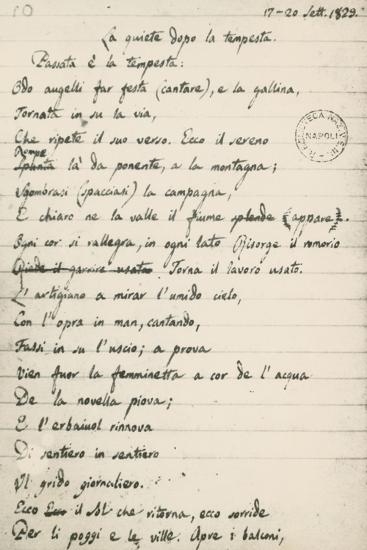 17-20 Sett. 1829.
La quiete dopo la tempesta.
Passata è la tempesta:
Odo augelli far festa (cantare), e la gallina,
Tornata in su la via,
Che ripete il suo verso. Ecco il sereno
Rompe
Spunta là da ponente, a la montagna;
Sgombrasi (spacciasi) la campagna,
E chiaro ne la valle il fiume splende (appare).
Ogni cor si rallegra, in ogni lato Risorge il romorio
Riede il garrire usato. Torna il lavoro usato.
L'artigiano a mirar l'umido cielo,
Con l'opra in man, cantando,
Fassi in su l'uscio; a prova
Vien fuor la femminetta a cor de l'acqua
De la novella piova;
E l'erbaiuol rinnova
Di sentiero in sentiero
Il grido giornaliero.
Ecco il Sol che ritorna, ecco sorride
Per li poggi e le ville. Apre i balconi,
NAPOLI